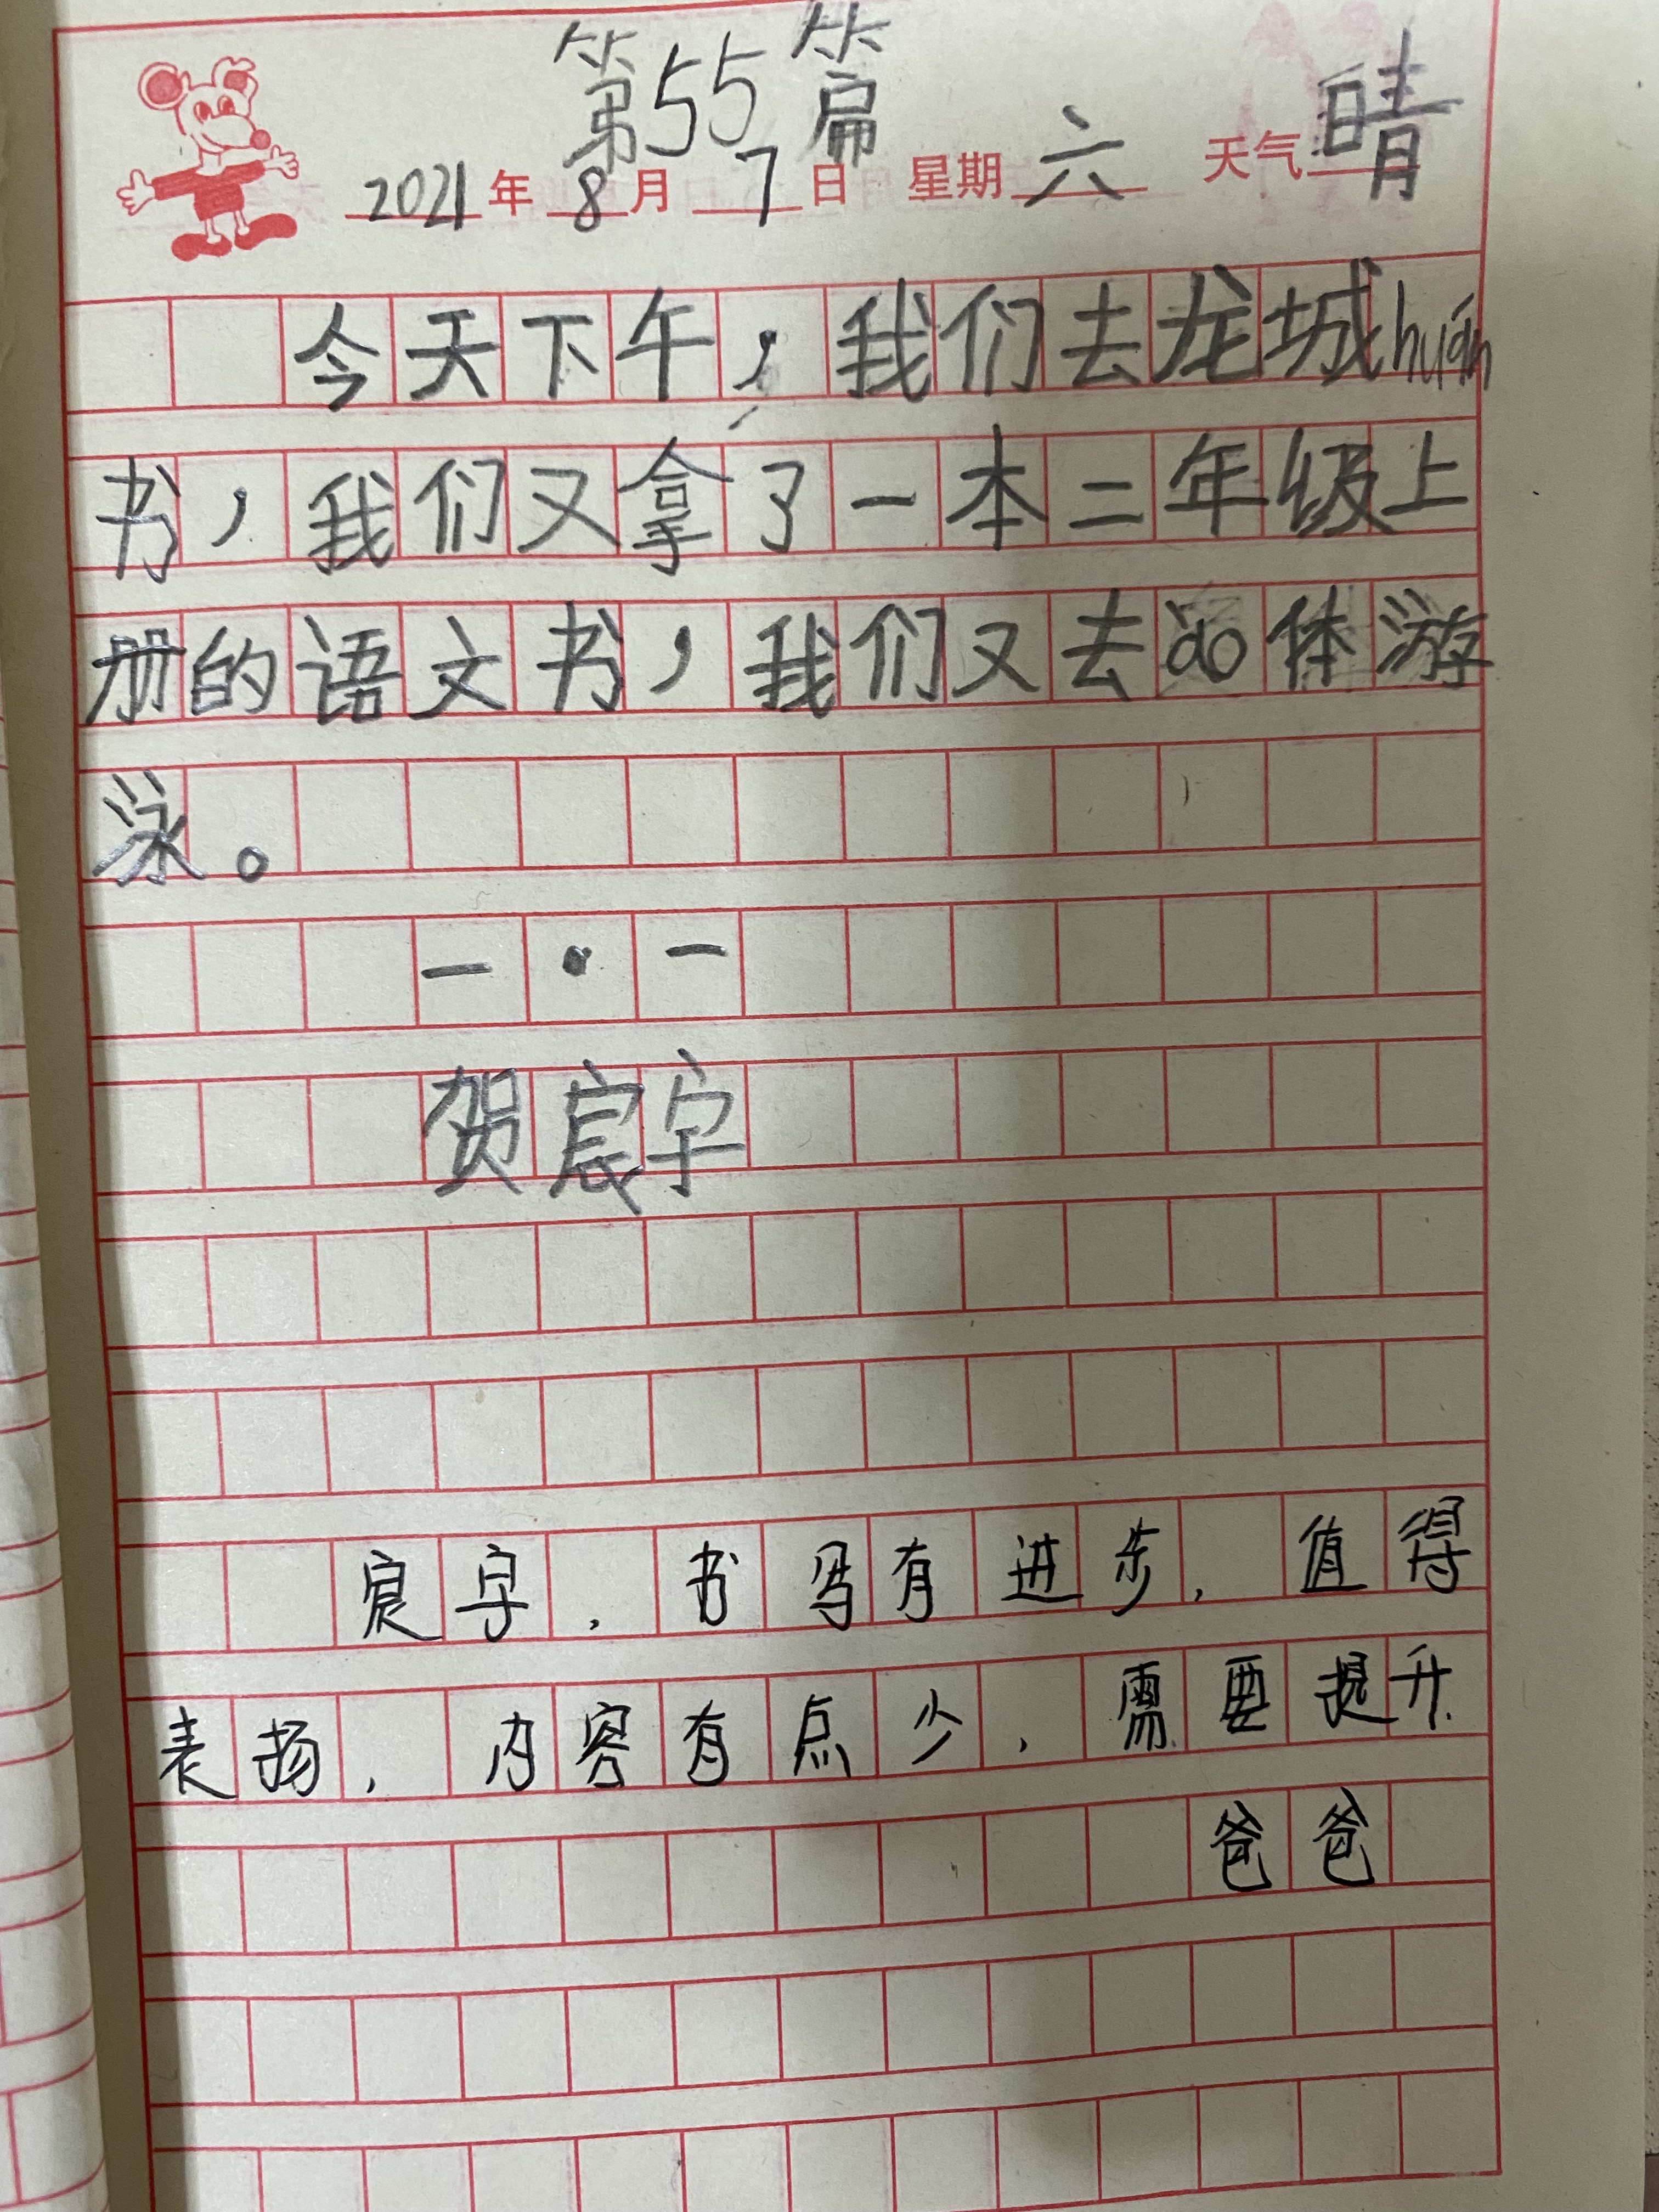 第55篇
2021年8月7日 星期六 天气晴
今天下午，我们去龙城huán
书，我们又拿了一本二年级上
册的语文书，我们又去ào体游
泳。
一·一
贺宸宇
宸宇，书写有进步，值得
表扬，内容有点少，需要提升.
爸爸